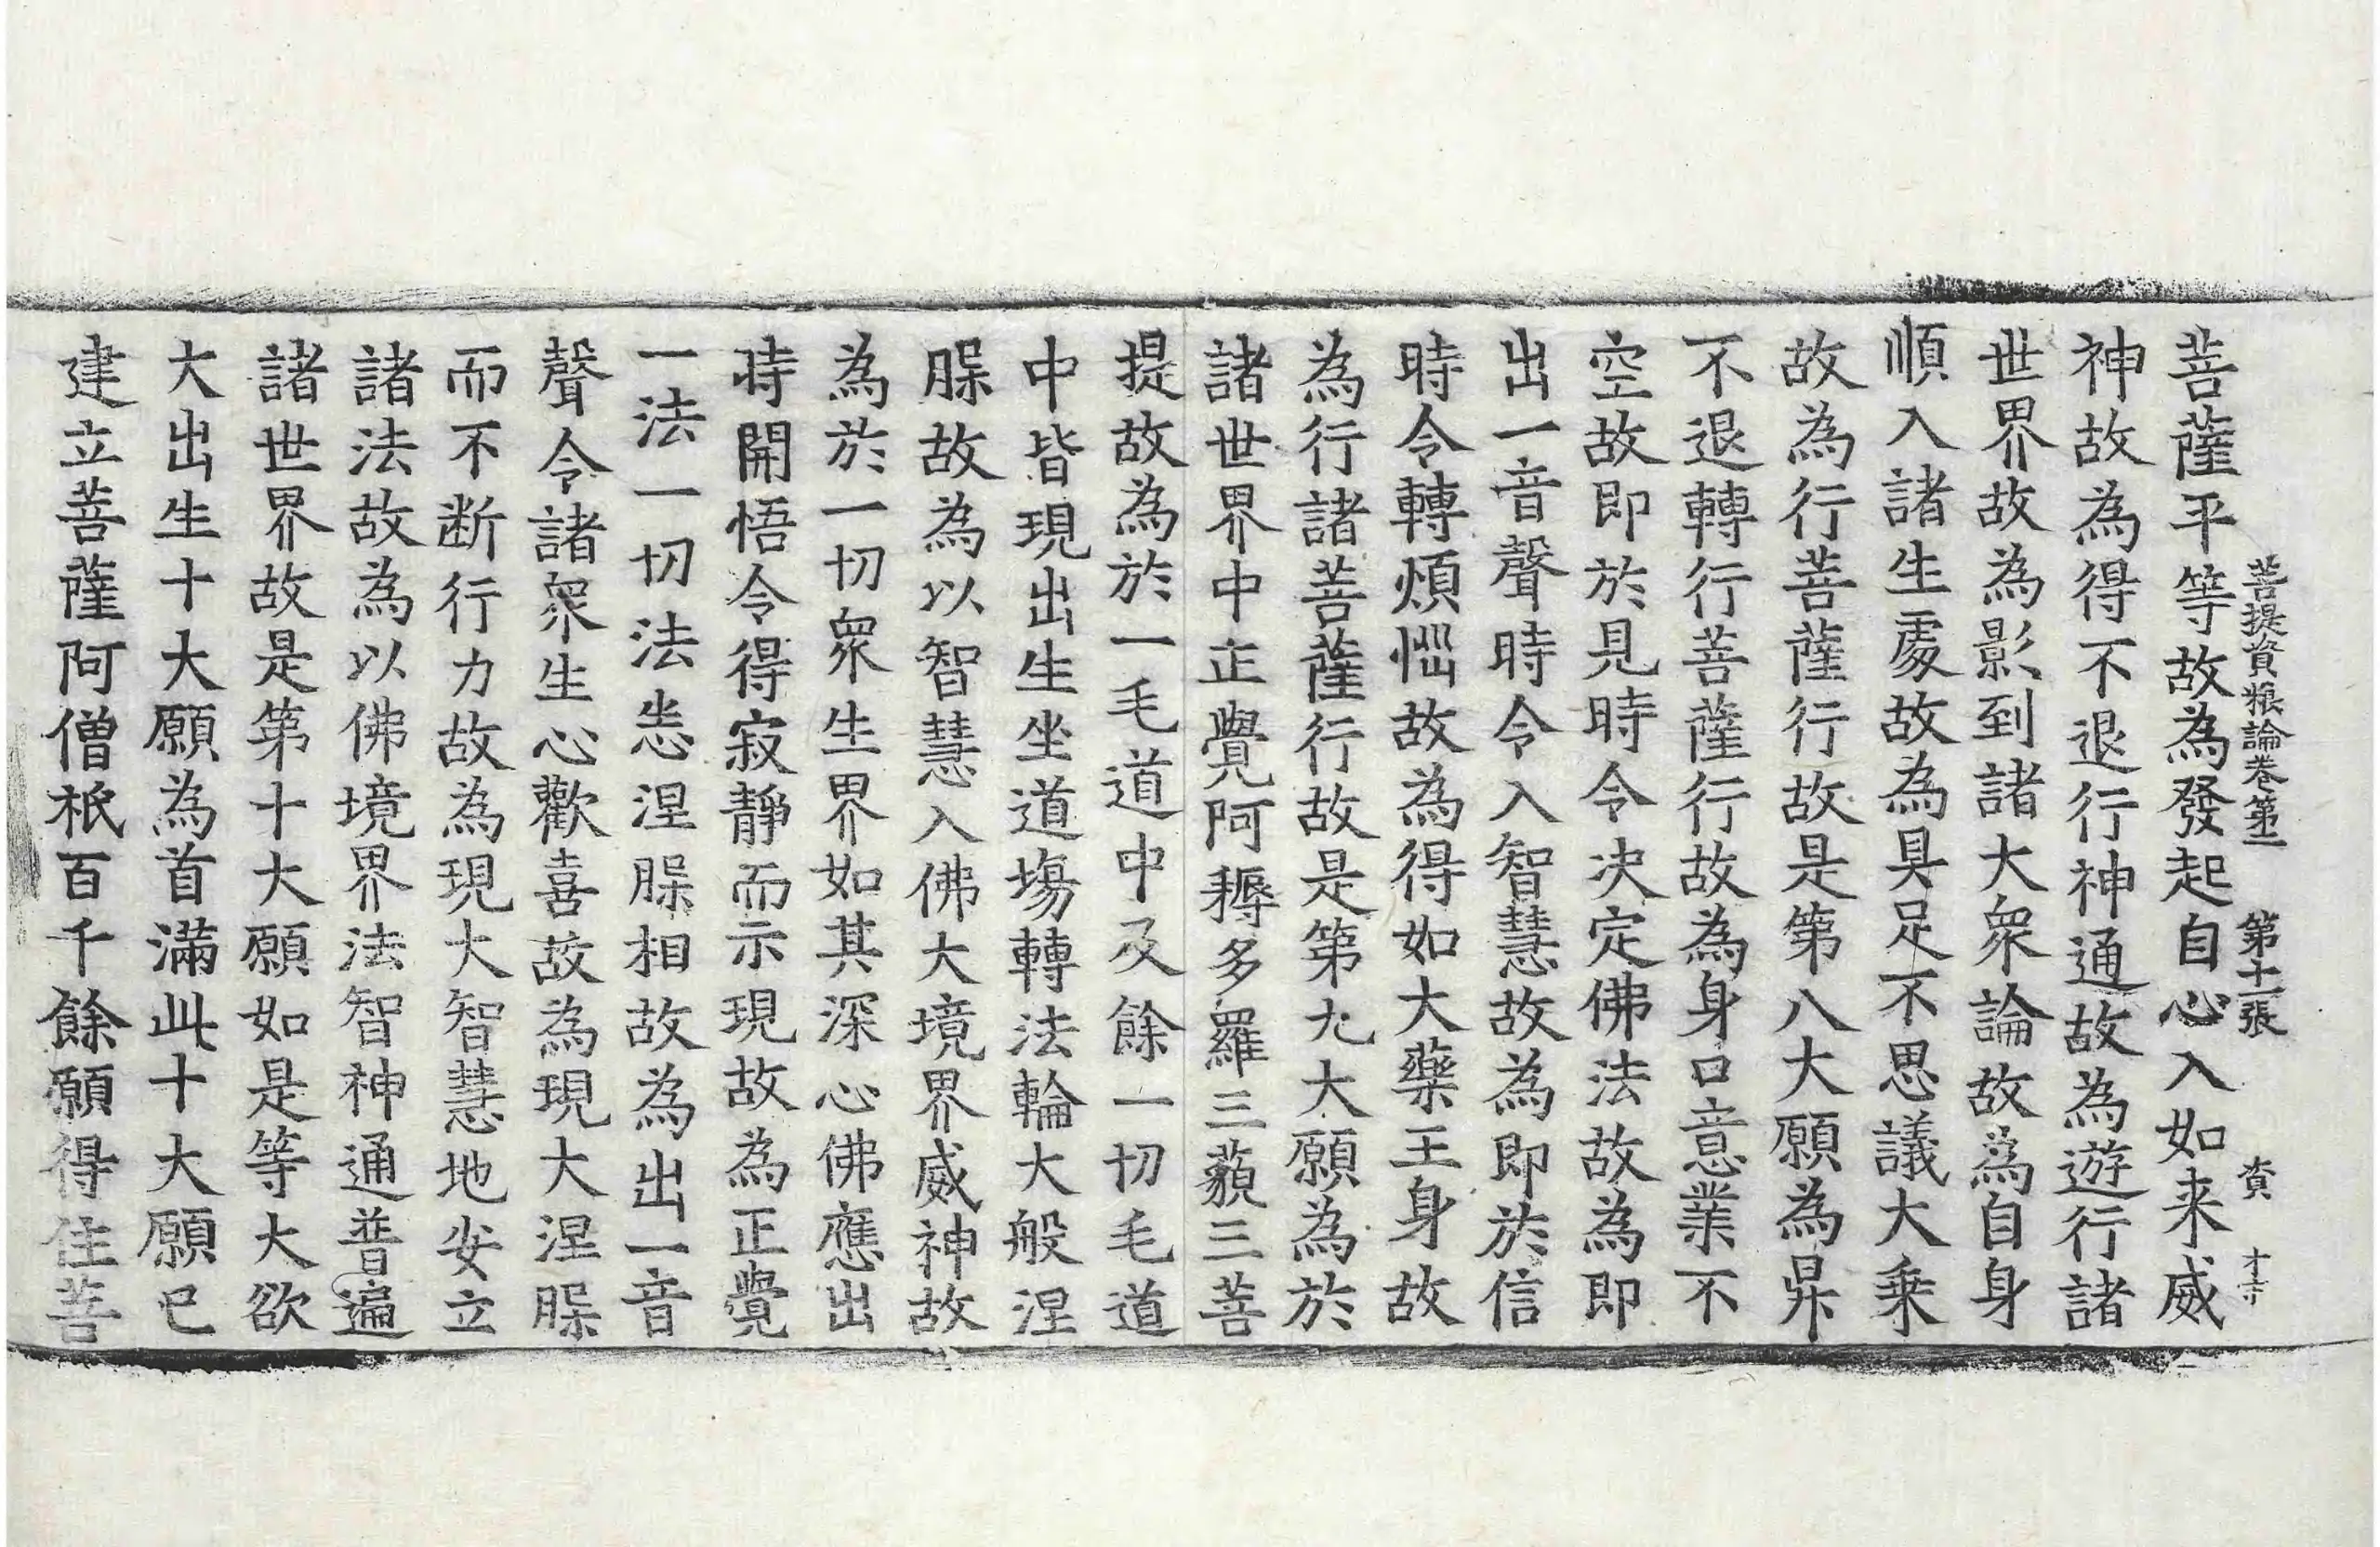 菩提資粮論卷第二　第十一張　資　才寺
菩薩平等故為發起自心入如来威
神故為得不退行神通故為遊行諸
世界故為影到諸大衆論故為自身
順入諸生處故為具足不思議大乗
故為行菩薩行故是第八大願為昇
不退轉行菩薩行故為身口意業不
空故即於見時令决定佛法故為即
出一音聲時令入智慧故為即於信
時令轉煩惱故為得如大藥王身故
為行諸菩薩行故是第九大願為於
諸世界中正覺阿耨多羅三藐三菩
提故為於一毛道中及餘一切毛道
中皆現出生坐道場轉法輪大般涅
槃故為以智慧入佛大境界威神故
為於一切衆生界如其深心佛應出
時開悟令得寂靜而示現故為正覺
一法一切法悉涅槃相故為出一音
聲令諸衆生心歡喜故為現大涅槃
而不断行力故為現大智慧地安立
諸法故為以佛境界法智神通普遍
諸世界故是第十大願如是等大欲
大出生十大願為首滿此十大願已
建立菩薩阿僧祇百千餘願得住菩